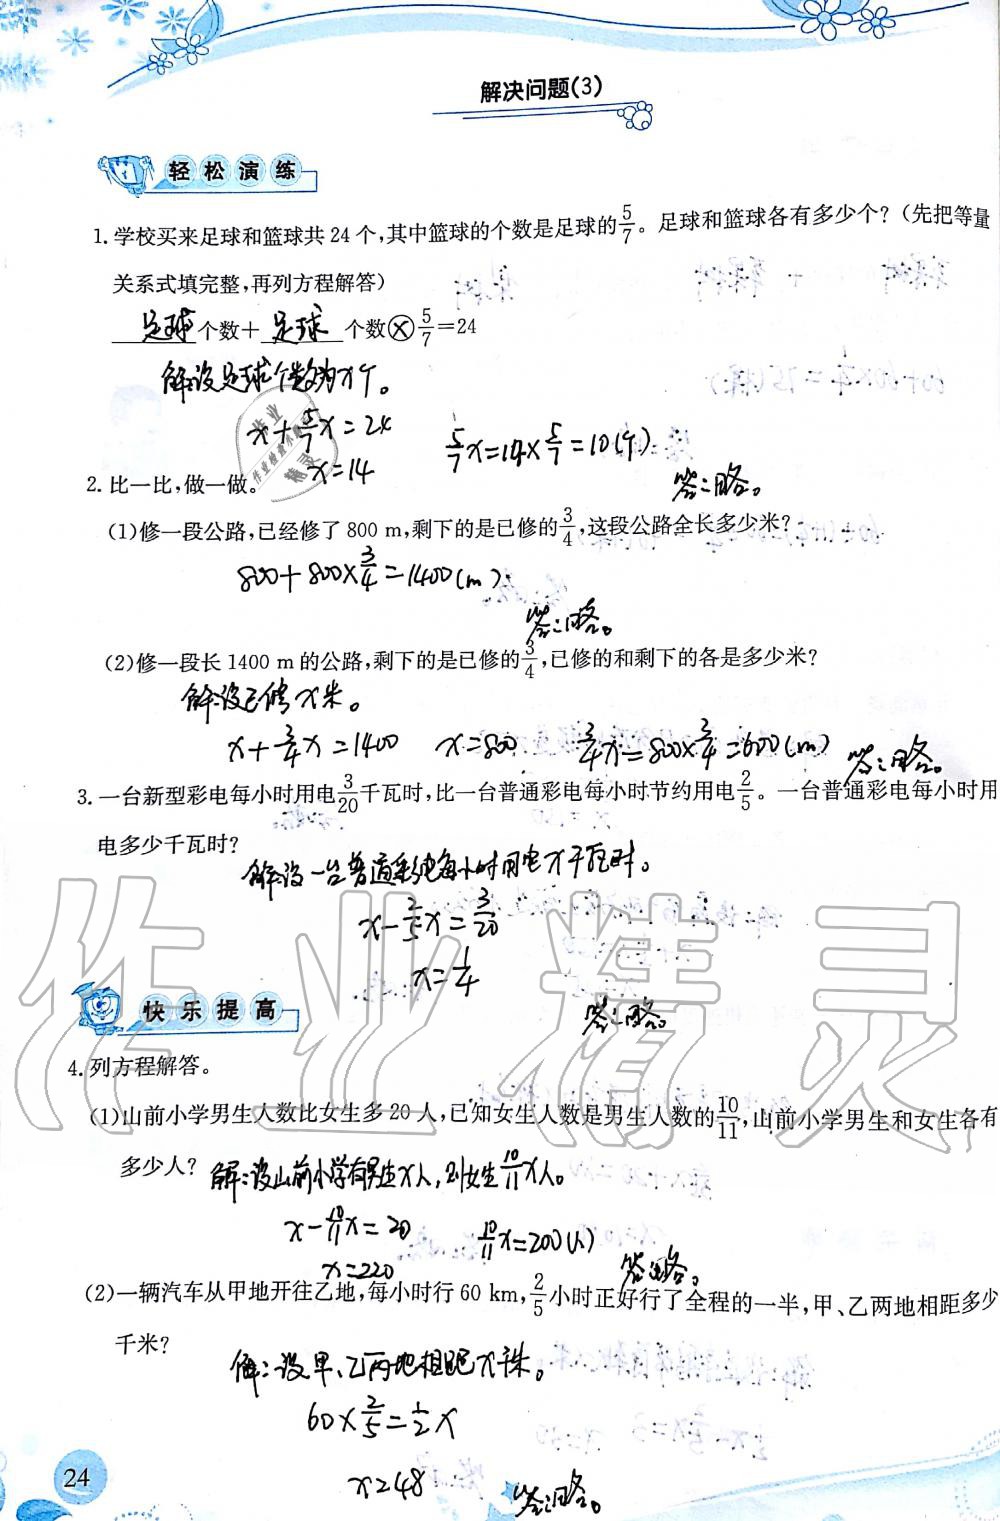 解决问题(3)
轻松演练
1. 学校买来足球和篮球共24个,其中篮球的个数是足球的5/7。足球和篮球各有多少个?(先把等量
关系式填完整,再列方程解答)
足球个数+足球个数⊗5/7=24
解:设足球个数为x个。
x+5/7x=24
5/7x=14×5/7=10(个)
x=14
答:略。
2. 比一比,做一做。
(1)修一段公路,已经修了800 m,剩下的是已修的3/4,这段公路全长多少米?
800+800×3/4=1400(m)
答:略。
(2)修一段长1400 m的公路,剩下的是已修的3/4,已修的和剩下的各是多少米?
解:设已修x米。
x+3/4x=1400 x=800 3/4x=800×3/4=600(m) 答:略。
3. 一台新型彩电每小时用电3/20千瓦时,比一台普通彩电每小时节约用电2/5。一台普通彩电每小时用
电多少千瓦时?
解:设一台普通彩电每小时用电x千瓦时。
x-2/5x=3/20
x=1/4
答:略。
快乐提高
4. 列方程解答。
(1)山前小学男生人数比女生多20人,已知女生人数是男生人数的10/11,山前小学男生和女生各有
多少人?
解:设山前小学有男生x人,则女生10/11x人。
x-10/11x=20 10/11x=200(人)
x=220
答:略。
(2)一辆汽车从甲地开往乙地,每小时行60 km,2/5小时正好行了全程的一半,甲、乙两地相距多少
千米?
解:设甲、乙两地相距x千米。
60×2/5=1/2x
x=48
答:略。
24
作业精灵
作业检查小帮手